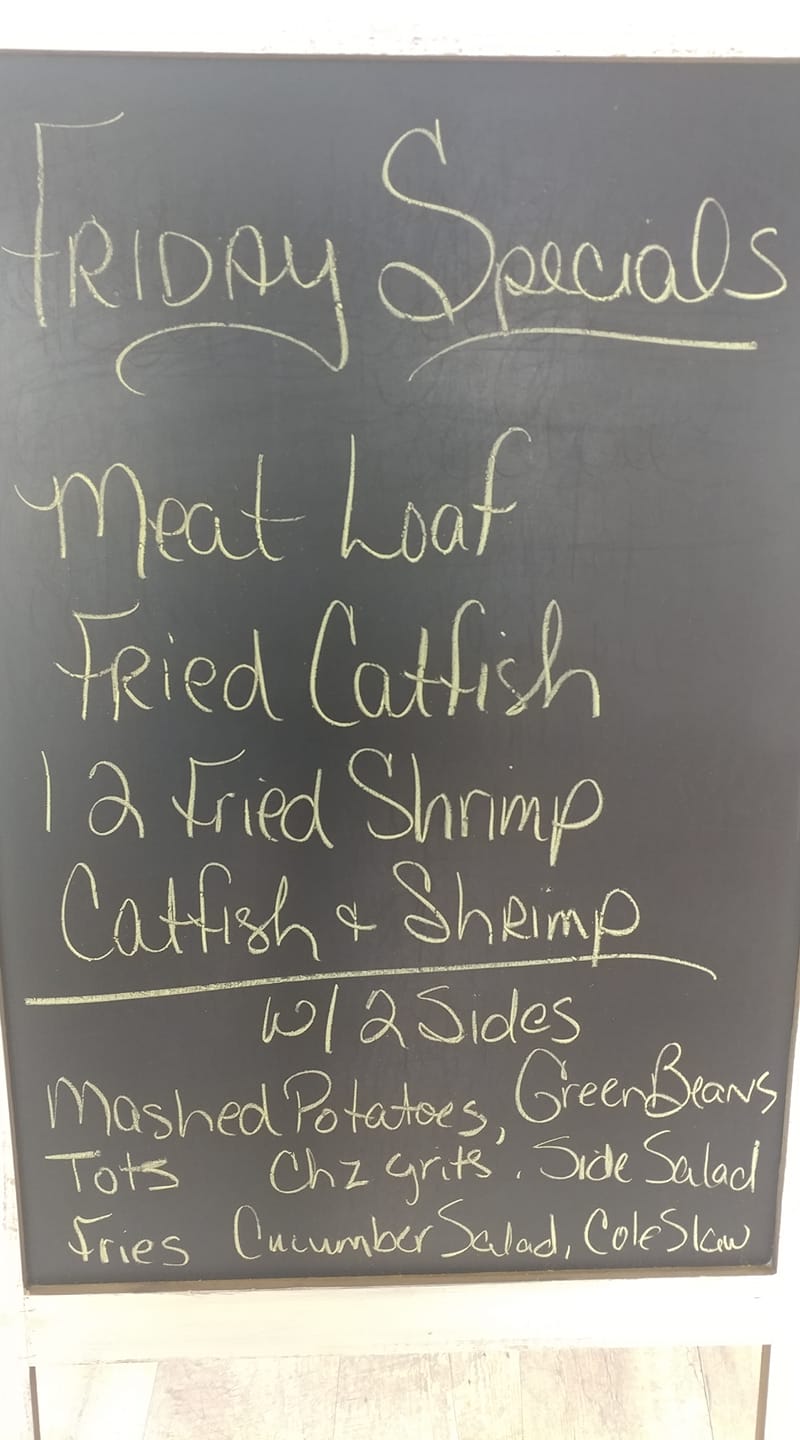 FRIDAY Specials
Meat Loaf
Fried Catfish
12 Fried Shrimp
Catfish & Shrimp
w/ 2 Sides
Mashed Potatoes, Green Beans
Tots Chz grits, Side Salad
Fries Cucumber Salad, Cole Slaw